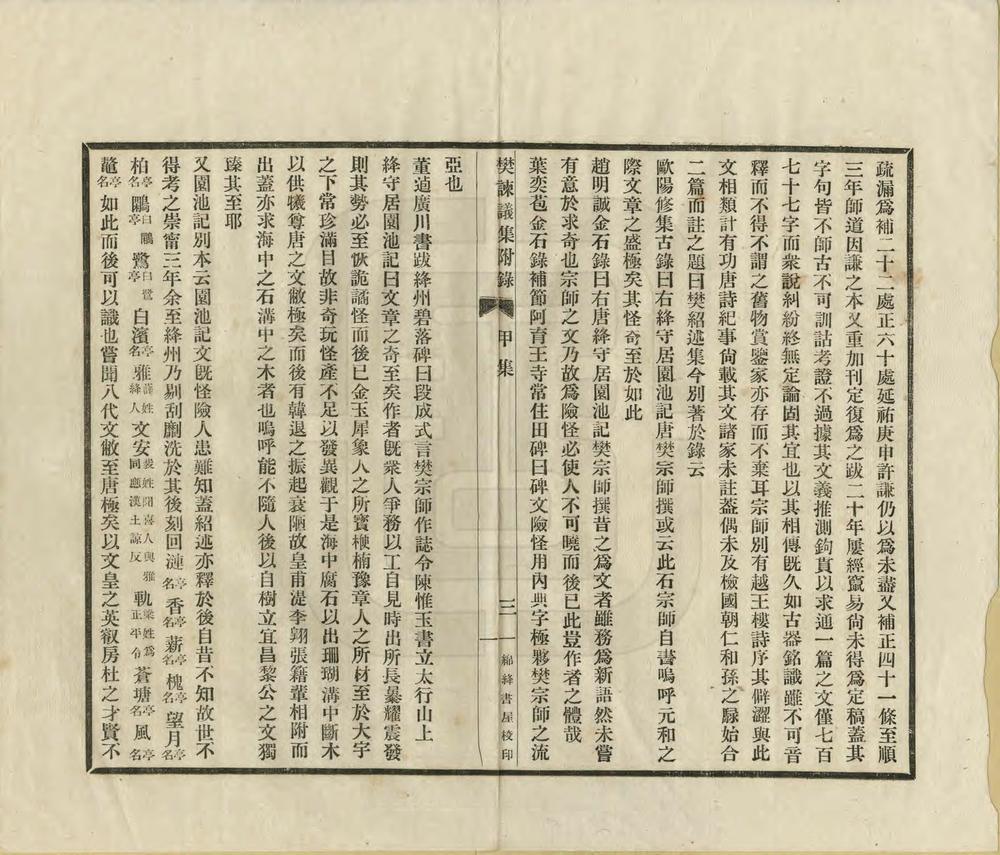 疏漏爲補二十二處正六十處延祐庚申許謙仍以爲未盡又補正四十一條至順
三年師道因謙之本又重加刊定復爲之跋二十年屢經竄易尙未得爲定稿蓋其
字句皆不師古不可訓詁考證不過據其文義推測鉤貫以求通一篇之文僅七百
七十七字而衆說糾紛終無定論固其宜也以其相傳旣久如古器銘識雖不可音
釋而不得不謂之舊物賞鑒家亦存而不棄耳宗師別有越王樓詩序其僻澀與此
文相類計有功唐詩紀事尙載其文諸家未註蓋偶未及檢國朝仁和孫之騄始合
二篇而註之題曰樊紹述集今別著於錄云
歐陽修集古錄曰右絳守居園池記唐樊宗師撰或云此石宗師自書嗚呼元和之
際文章之盛極矣其怪奇至於如此
趙明誠金石錄曰右唐絳守居園池記樊宗師撰昔之爲文者雖務爲新語然未嘗
有意於求奇也宗師之文乃故爲險怪必使人不可曉而後已此豈作者之體哉
葉奕苞金石錄補節阿育王寺常住田碑曰碑文險怪用內典字極夥樊宗師之流
樊諫議集附錄 甲集 三 綿絳書屋校印
亞也
董逌廣川書跋絳州碧落碑曰段成式言樊宗師作誌令陳惟玉書立太行山上
絳守居園池記曰文章之奇至矣作者旣衆人爭務以工自見時出所長暴耀震發
則其勢必至恢詭譎怪而後已金玉犀象人之所寶楩楠豫章人之所材至於大宇
之下常珍滿目故非奇玩怪產不足以發異觀于是海中腐石以出珊瑚溝中斷木
以供犧尊唐之文敝極矣而後有韓退之振起衰陋故皇甫湜李翶張籍輩相附而
出蓋亦求海中之石溝中之木者也嗚呼能不隨人後以自樹立宜昌黎公之文獨
臻其至耶
又園池記別本云園池記文旣怪險人患難知蓋紹述亦釋於後自昔不知故世不
得考之崇甯三年余至絳州乃剔刮劘洗於其後刻回漣亭名香亭名薪亭名槐亭名望月亭名
柏亭名鵰曰鵰亭鷺曰鷺亭白濱亭名雅薛姓絳人文安裴姓聞喜人與雅同應漢土諒反軌梁姓爲正平令蒼塘亭名風亭名
鼇亭名如此而後可以識也嘗聞八代文敝至唐極矣以文皇之英叡房杜之才賢不